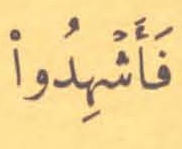 فَأَشۡهِدُواْ